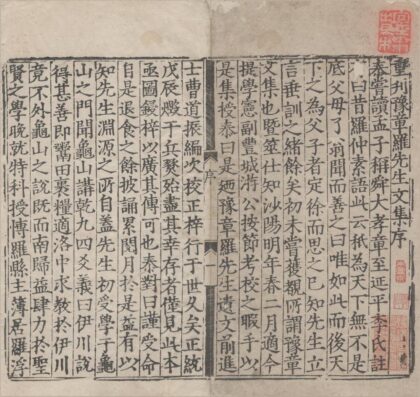 重刊豫章羅先生文集序
泰嘗讀孟子稱舜大孝章至延平李氏註
曰昔羅仲素語此云秖為天下無不是
底父母了翁聞而善之曰唯如此而後天
下之為父子者定徐而思之已知先生立
言垂訓之緒餘矣初未嘗獲覩所謂豫章
文集也暨筮仕知沙陽明年春二月適今
提學憲副豐城游公按節考校之暇手以
是集授泰曰是廼豫章羅先生遺文前進
序
一
士曹道振編次校正梓行于世久矣正統
戊辰燬于兵燹殆盡其幸存者僅見此本
亟圖鋟梓以廣其傳可也泰對曰謹受命
自是退食之餘披誦累閱月於是益有以
知先生淵源之所自蓋先生初受學于龜
山之門聞龜山講乾九四爻義曰伊川說
得甚善即鬻田裹糧適洛中求教於伊川
竟不外龜山之說既而南歸益肆力於聖
賢之學晚就特科授博羅縣主薄卒羅浮